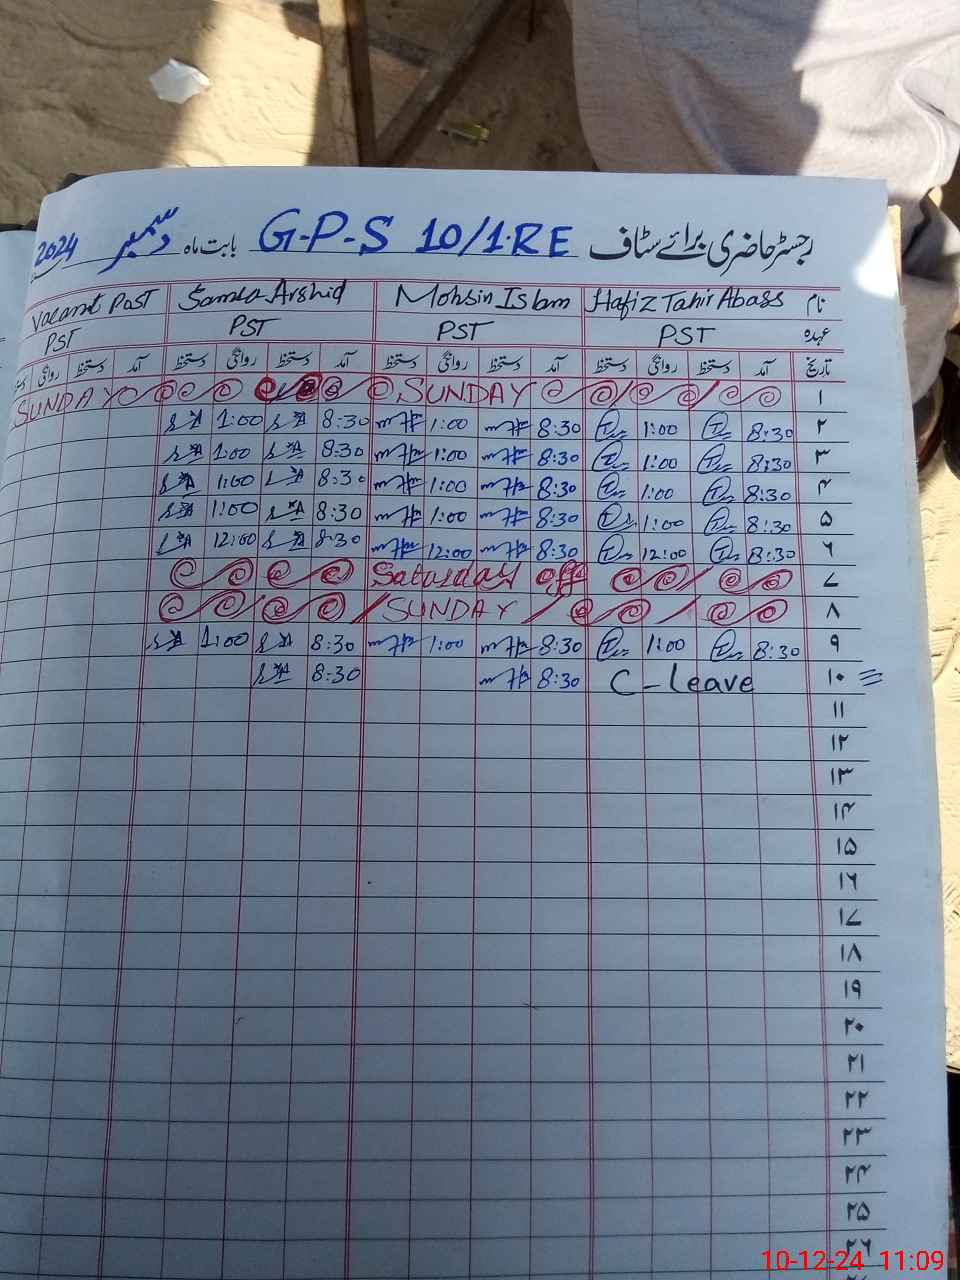 رجسٹر حاضری برائے سٹاف G-P-S 10/1.RE بابت ماہ دسمبر 2024
نام Hafiz Tahir Abass Mohsin Islam Samla Arshid Vacant Post
عہدہ PST PST PST PST
تاریخ آمد دستخط روانگی دستخط آمد دستخط روانگی دستخط آمد دستخط روانگی دستخط آمد دستخط روانگی
۱ SUNDAY SUNDAY
۲ 8:30 1:00 8:30 1:00 8:30 1:00
۳ 8:30 1:00 8:30 1:00 8:30 1:00
۴ 8:30 1:00 8:30 1:00 8:30 1:00
۵ 8:30 1:00 8:30 1:00 8:30 1:00
۶ 8:30 12:00 8:30 12:00 8:30 12:00
۷ Saturday off
۸ SUNDAY
۹ 8:30 1:00 8:30 1:00 8:30 1:00
۱۰ C-Leave 8:30 8:30
۱۱
۱۲
۱۳
۱۴
۱۵
۱۶
۱۷
۱۸
۱۹
۲۰
۲۱
۲۲
۲۳
۲۴
۲۵
۲۶
10-12-24 11:09